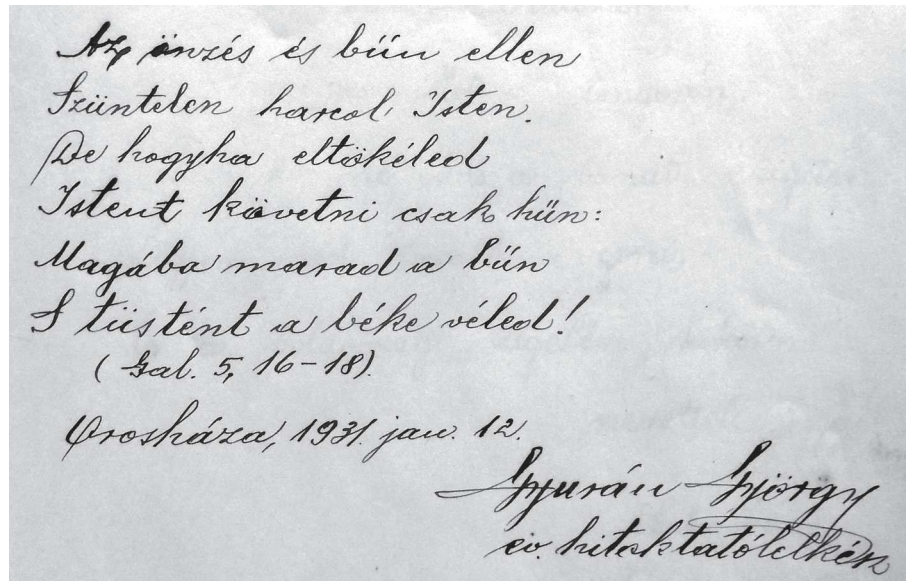 Az önzés és bűn ellen
Szüntelen harcol Isten.
De hogyha eltökéled
Istent követni csak hűn:
Magába marad a bűn
S tüstént a béke véled!
(Gal. 5, 16-18).
Orosháza, 1931. jan. 12.
Gyurán György
ev. hitoktatólelkész